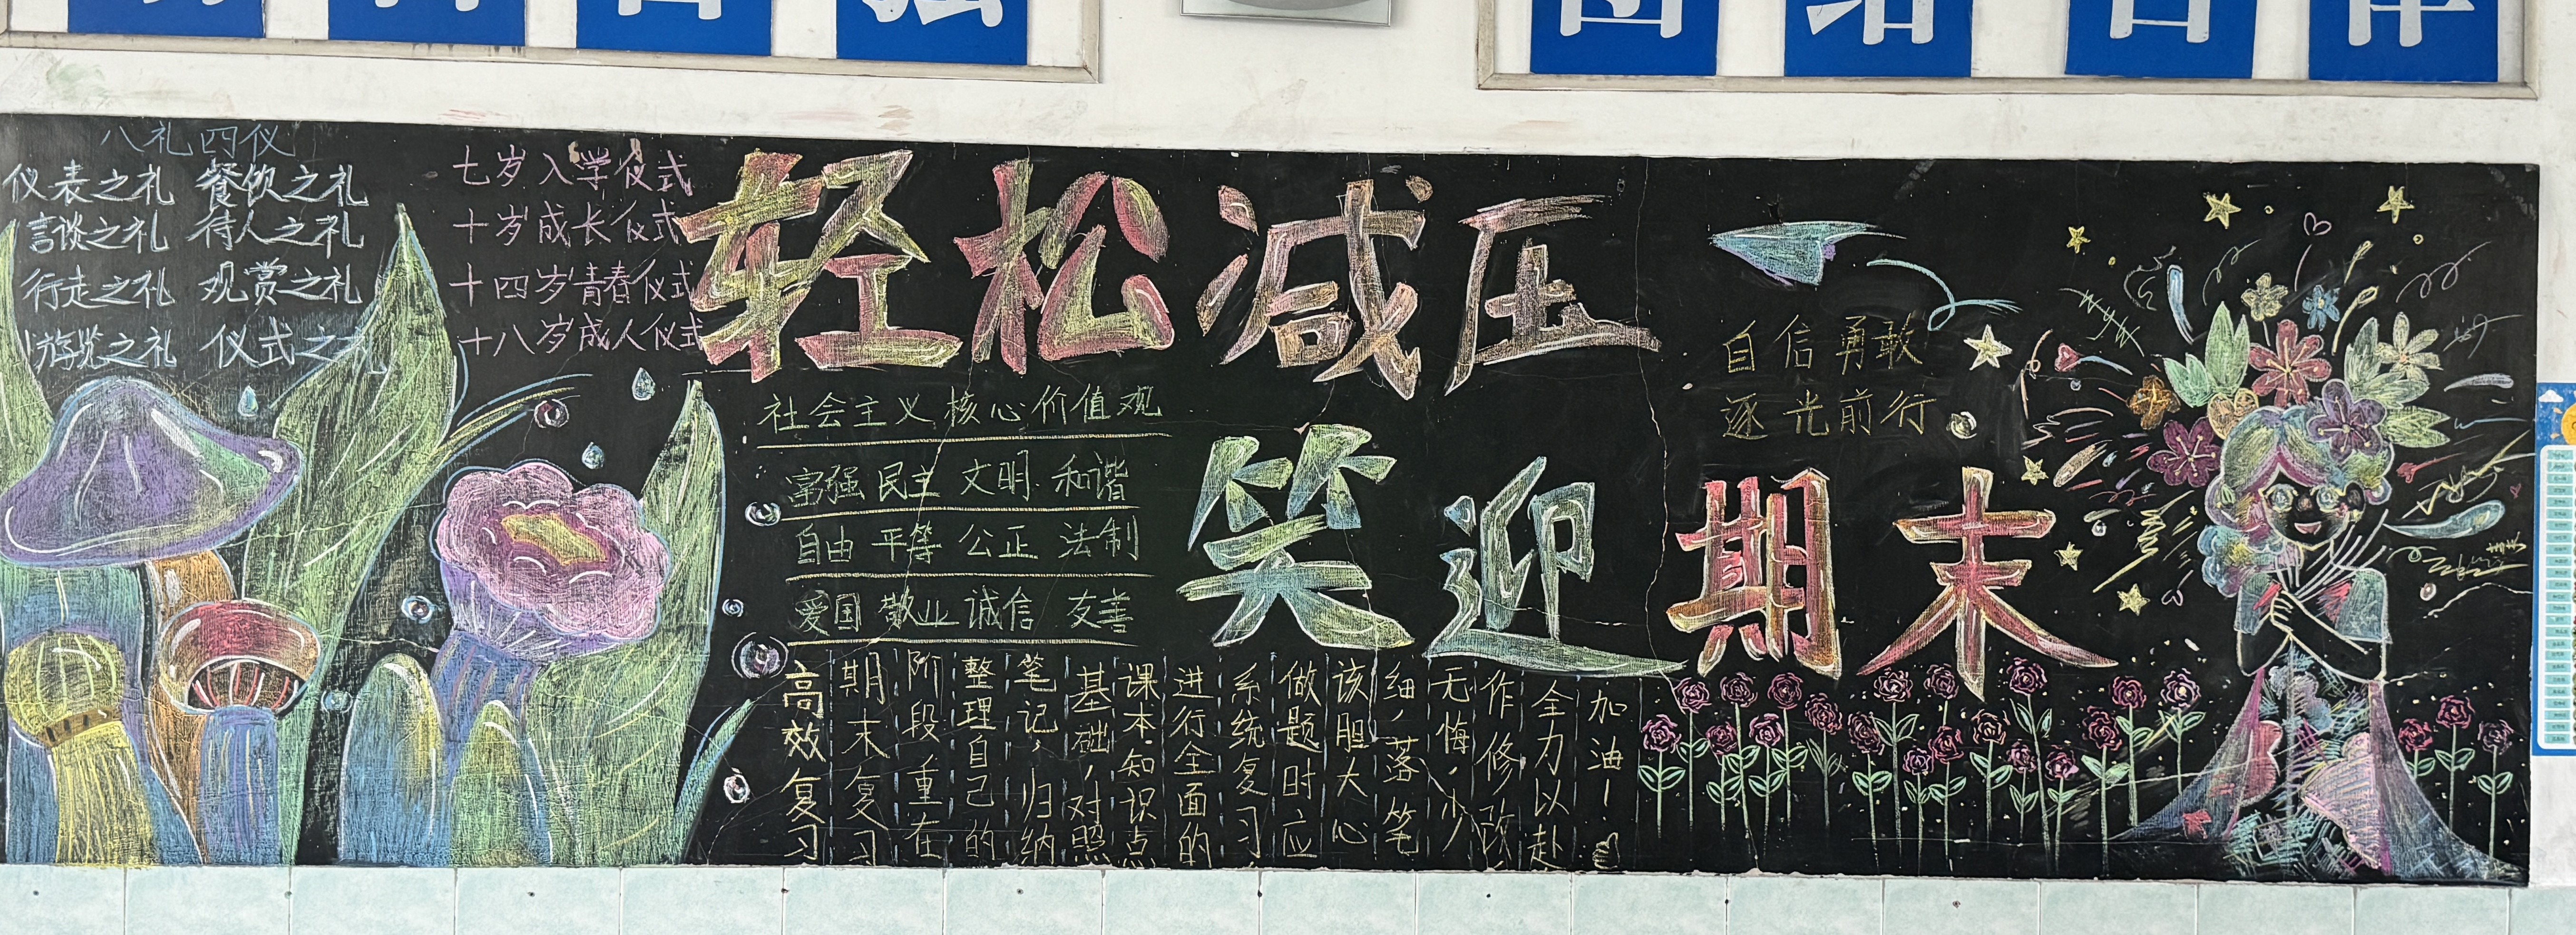 团结
八礼四仪
仪表之礼 餐饮之礼
言谈之礼 待人之礼
行走之礼 观赏之礼
游览之礼 仪式之礼
七岁入学仪式
十岁成长仪式
十四岁青春仪式
十八岁成人仪式
轻松减压
笑迎期末
自信勇敢
逐光前行
社会主义核心价值观
富强 民主 文明 和谐
自由 平等 公正 法制
爱国 敬业 诚信 友善
高效复习
期末复习
阶段重在
整理自己的
笔记,归纳
基础,对照
课本知识点
进行全面的
系统复习
做题时应
该胆大心
细,落笔
无悔,少
作修改
全力以赴
加油!